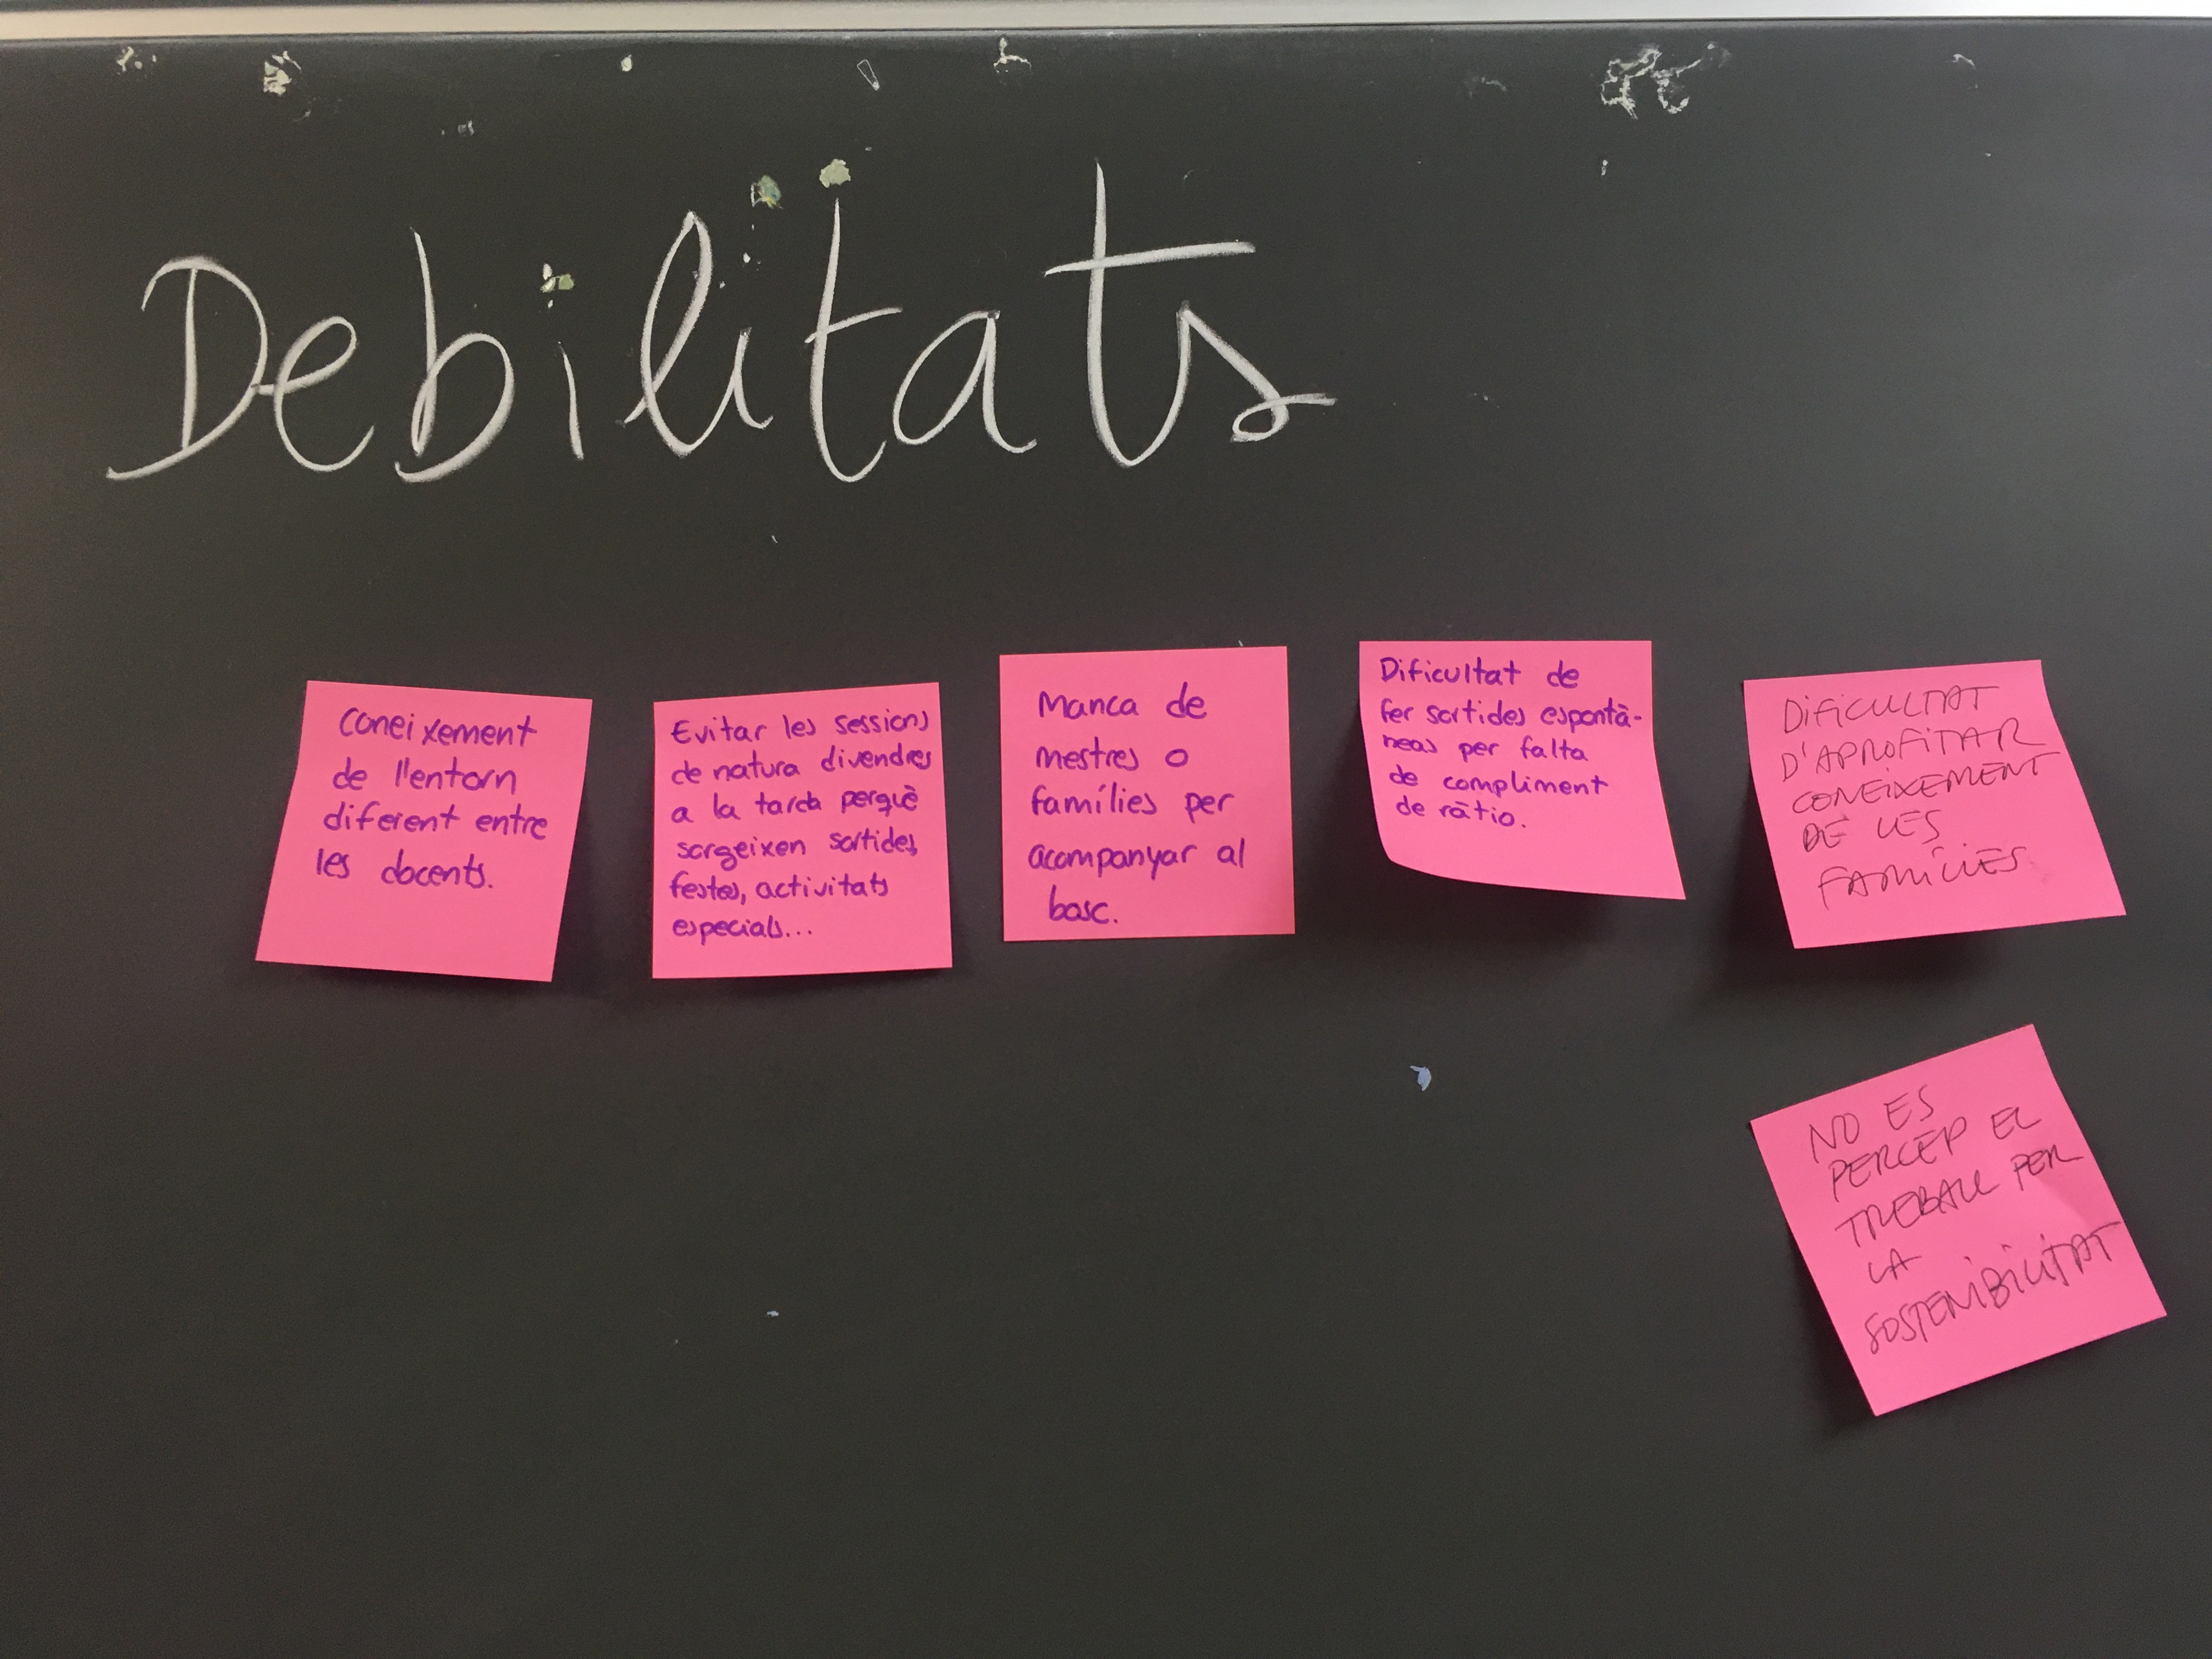 Debilitats
Coneixement
de l'entorn
diferent entre
les docents.
Evitar les sessions
de natura divendres
a la tarda perquè
sorgeixen sortides,
festes, activitats
especials...
Manca de
mestres o
famílies per
acompanyar al
bosc.
Dificultat de
fer sortides espontà-
neas per falta
de compliment
de ràtio.
DIFICULTAT
D'APROFITAR
CONEIXEMENT
DE LES
FAMÍLIES
NO ES
PERCEP EL
TREBALL PER
LA
SOSTENIBILITAT